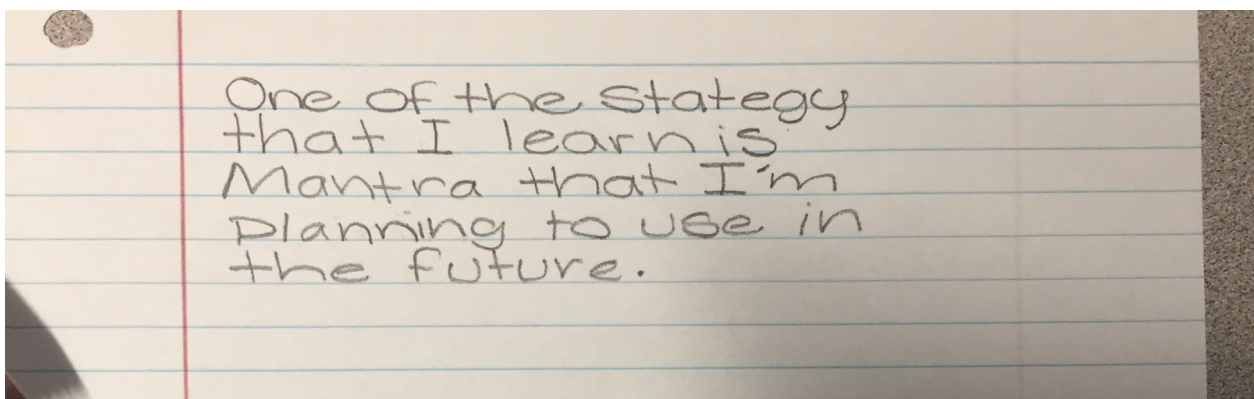 One of the stategy
that I learn is
Mantra that I'm
planning to use in
the future.